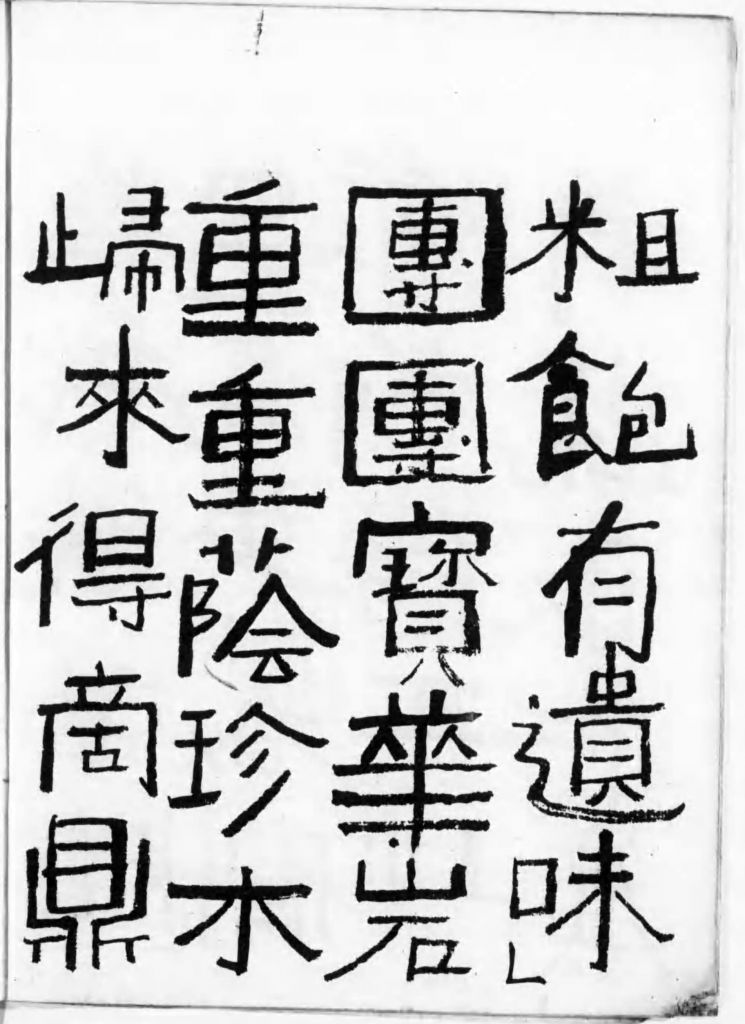 粗飽有遺味
團團寶華岩
重重蔭珍木
歸來得商鼎